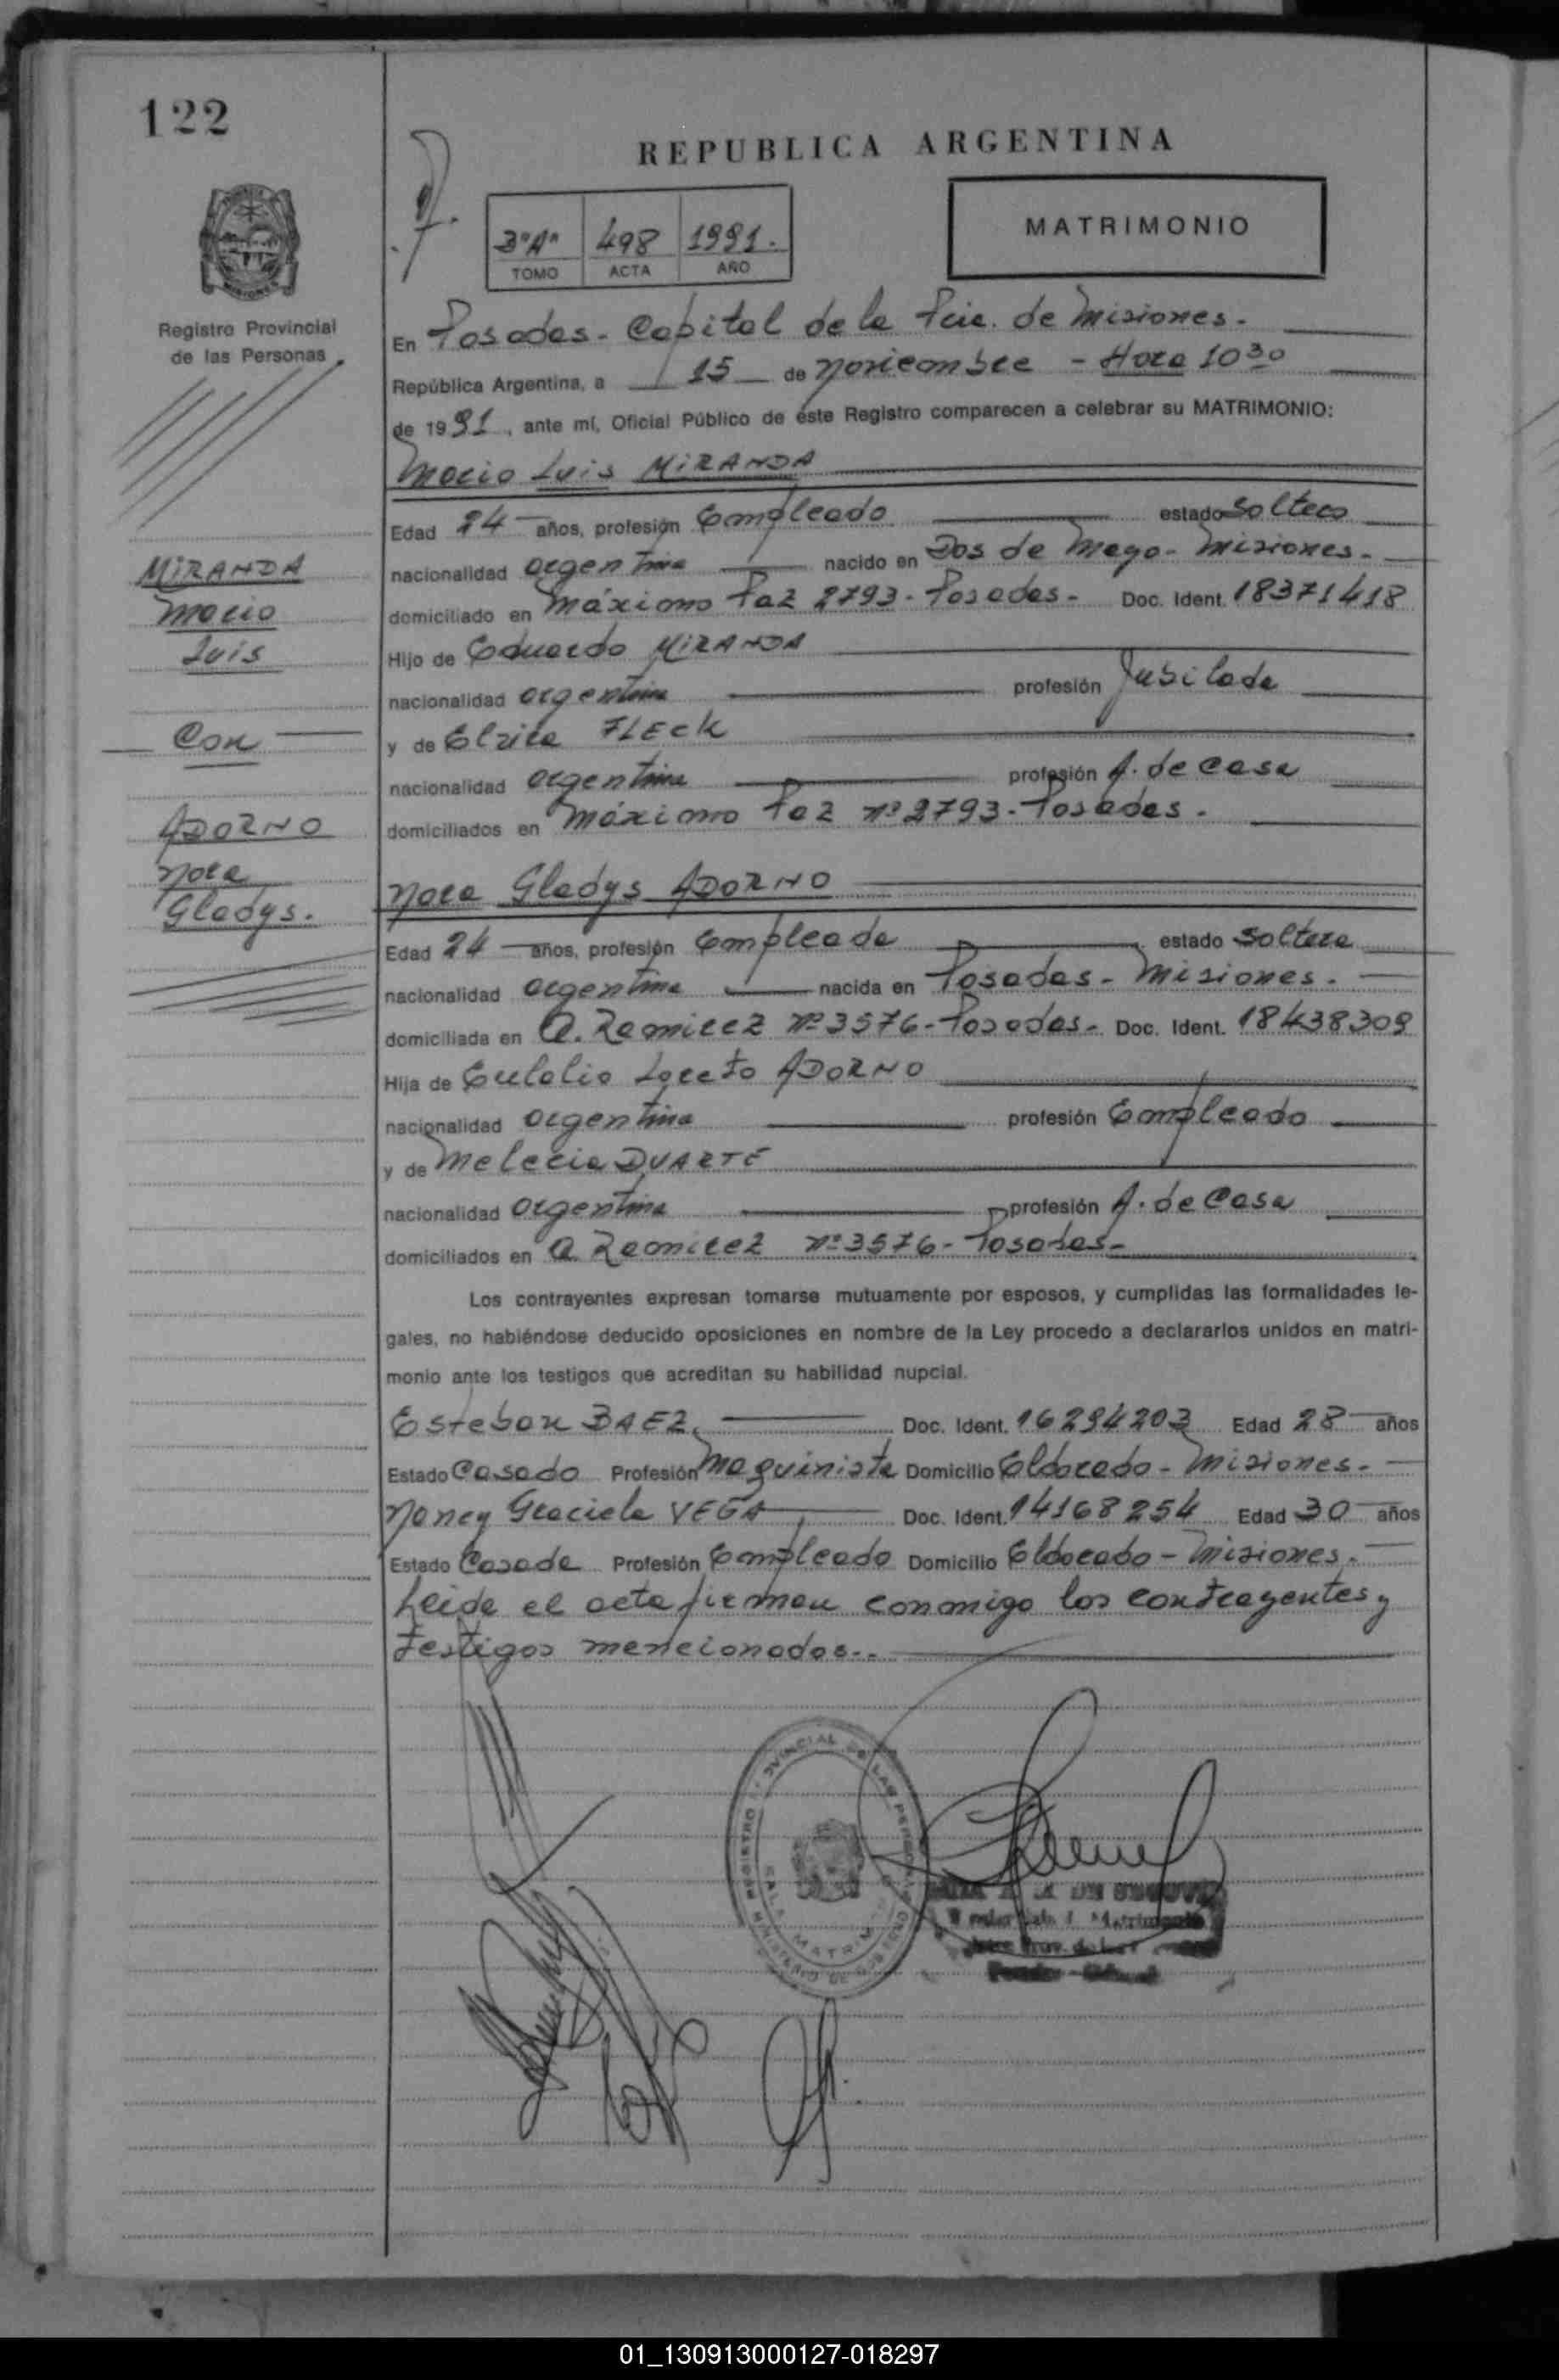 122
REPUBLICA ARGENTINA
MATRIMONIO
3º"A" 498 1991.
TOMO ACTA AÑO
Registro Provincial
de las Personas
En Posadas - Capital de la Pcia. de Misiones -
República Argentina, a 15 de Noviembre - Hora 10 30
de 1991, ante mí, Oficial Público de éste Registro comparecen a celebrar su MATRIMONIO:
Mario Luis MIRANDA
Edad 24 años, profesión Empleado estado Soltero
nacionalidad argentina nacido en Dos de Mayo - Misiones -
domiciliado en Máximo Paz 2793 - Posadas - Doc. Ident. 18371418
Hijo de Eduardo MIRANDA
nacionalidad argentina profesión Jubilado
y de Elzira FLECK
nacionalidad argentina profesión A. de Casa
domiciliados en Máximo Paz Nº 2793 - Posadas -
MIRANDA
Mario
Luis
Con
ADORNO
Nora
Gladys.
Nora Gladys ADORNO
Edad 24 años, profesión Empleada estado Soltera
nacionalidad argentina nacida en Posadas - Misiones -
domiciliada en A. Ramirez Nº 3576 - Posadas - Doc. Ident. 18438309
Hija de Eulalio Loreto ADORNO
nacionalidad argentina profesión Empleado
y de Melecia DUARTE
nacionalidad argentina profesión A. de Casa
domiciliados en A. Ramirez Nº 3576 - Posadas -
Los contrayentes expresan tomarse mutuamente por esposos, y cumplidas las formalidades le-
gales, no habiéndose deducido oposiciones en nombre de la Ley procedo a declararlos unidos en matri-
monio ante los testigos que acreditan su habilidad nupcial.
Esteban BAEZ. Doc. Ident. 16294203 Edad 28 años
Estado Casado Profesión Maquinista Domicilio Eldorado - Misiones -
Nancy Graciela VEGA Doc. Ident. 14168254 Edad 30 años
Estado Casada Profesión Empleado Domicilio Eldorado - Misiones -
Leida el acta firman conmigo los contrayentes y
testigos mencionados..
REGISTRO PROVINCIAL DE LAS PERSONAS
MINISTERIO DE GOBIERNO
SALA MATRIM
01_130913000127-018297